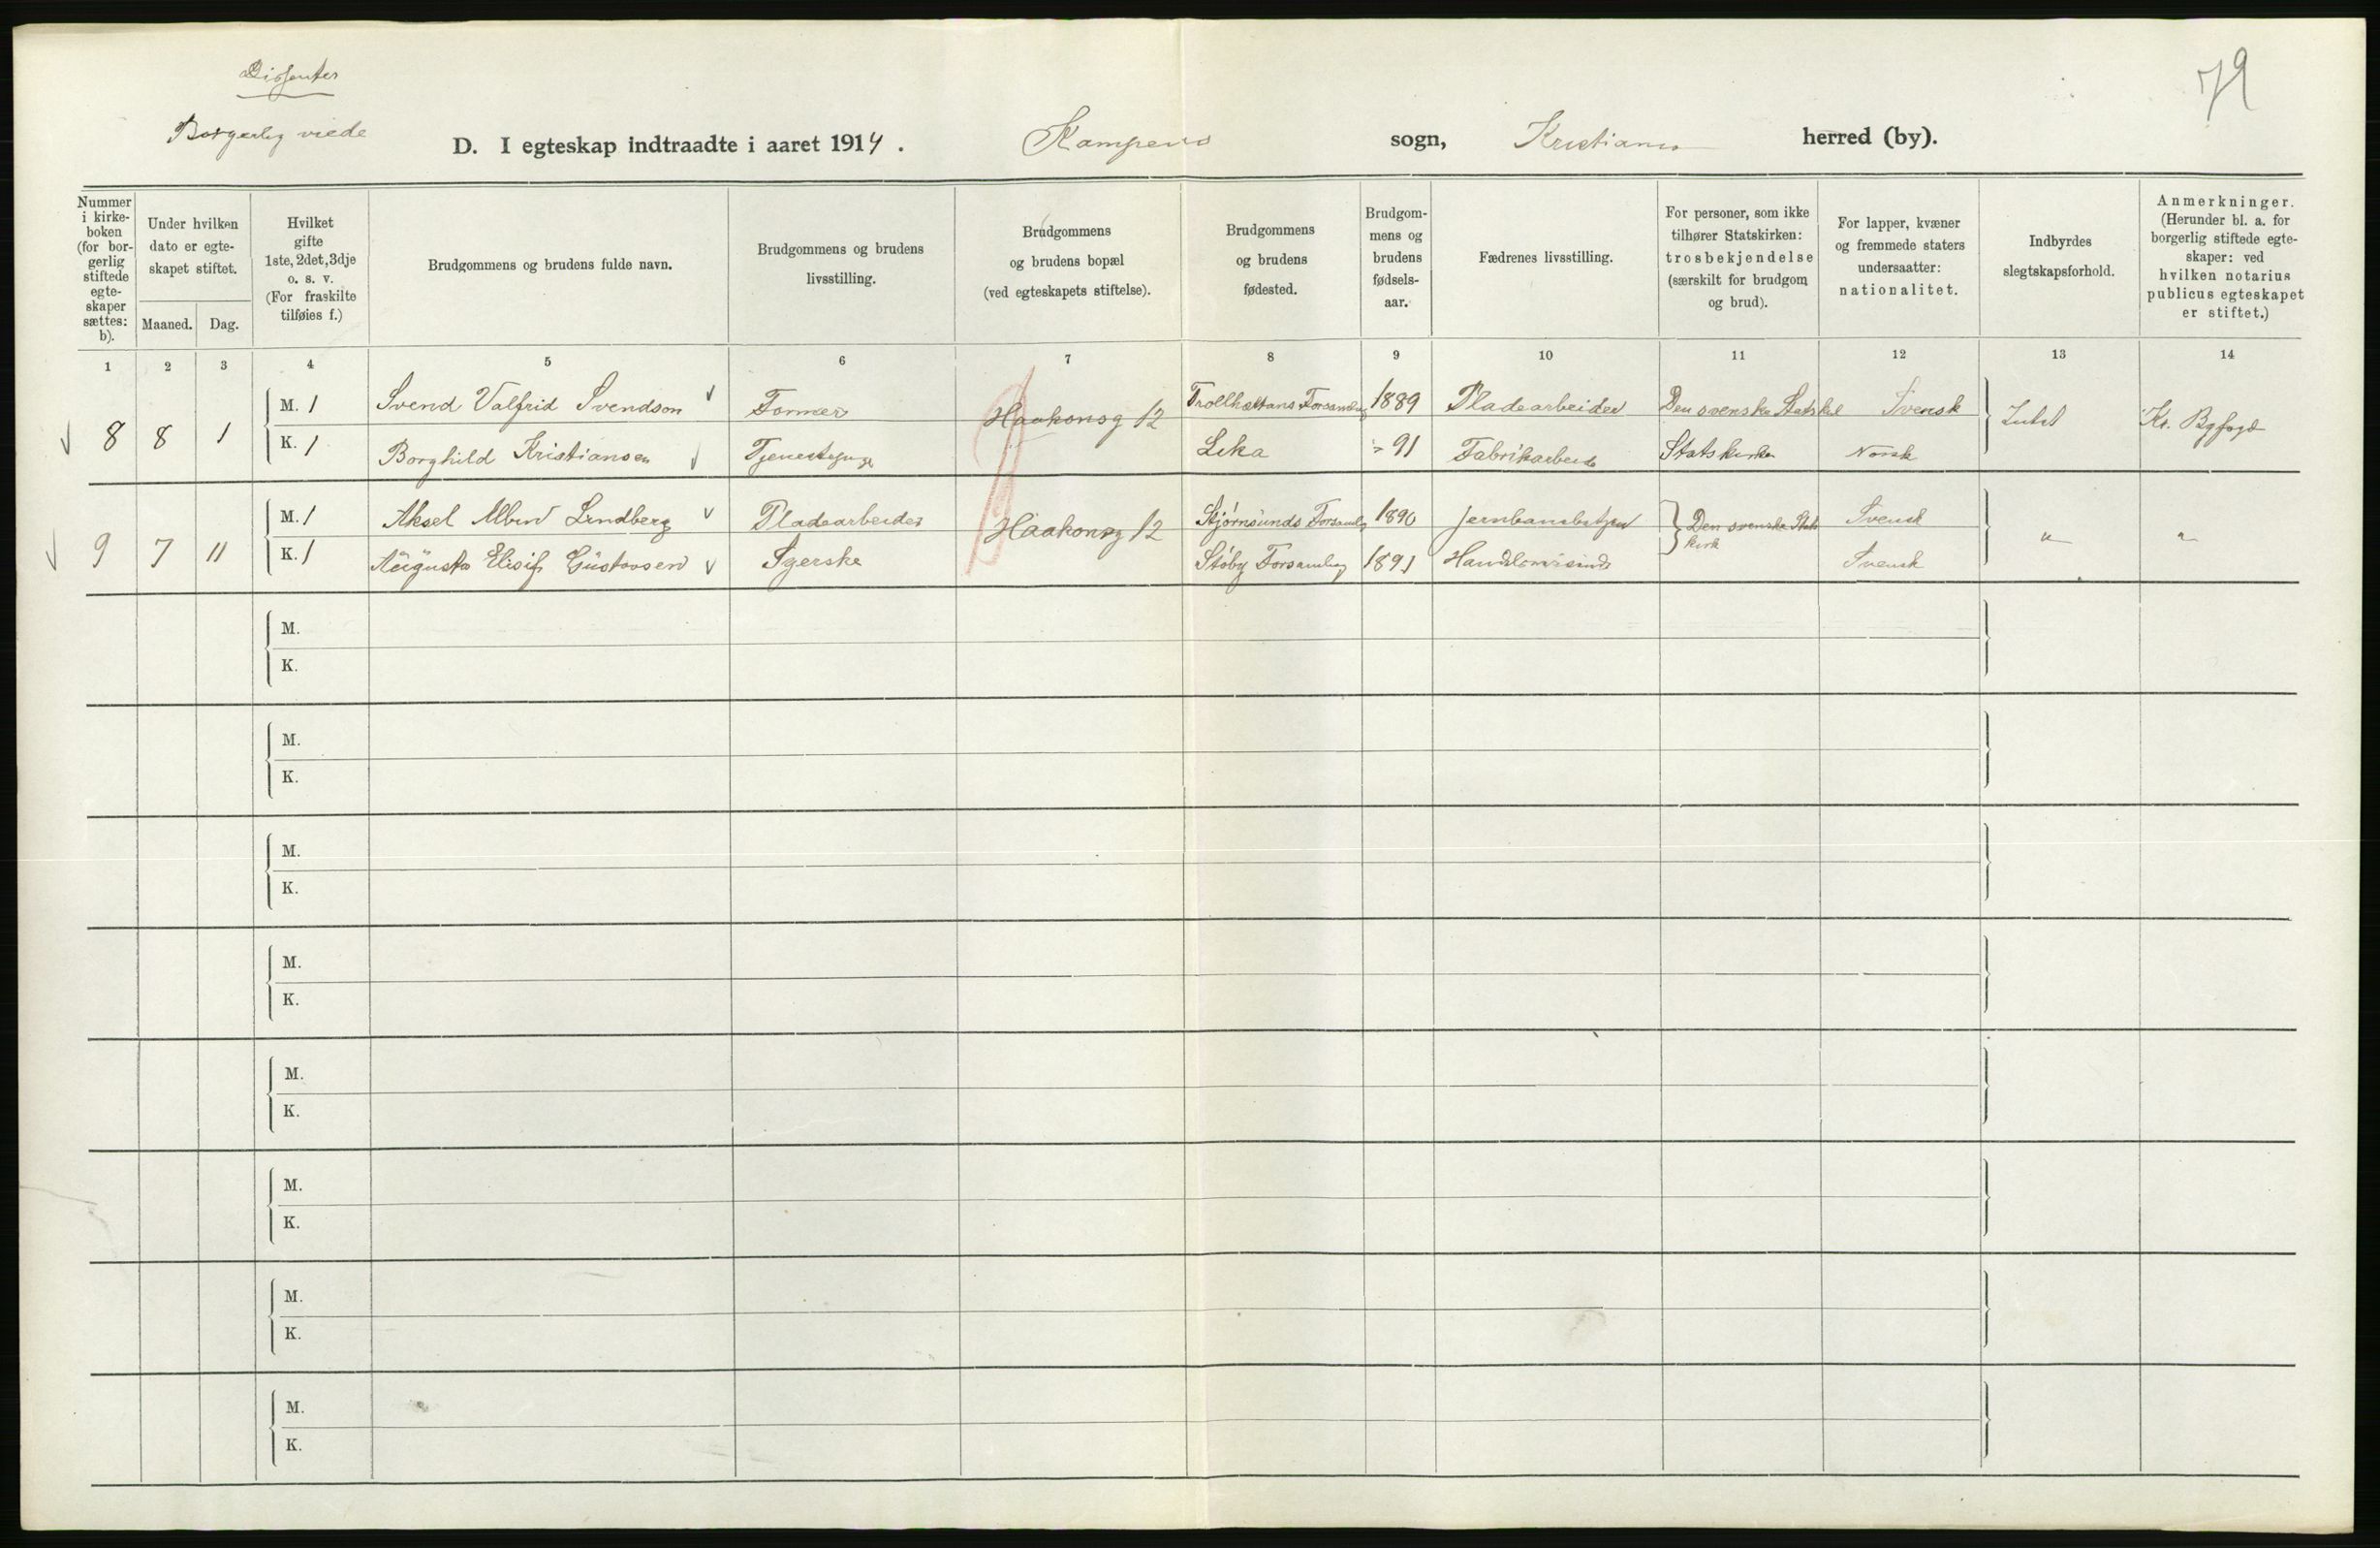 Dissenter
79
Borgerlig viede
D. I egteskap indtraadte i aaret 1914. Kampens sogn, Kristiania herred (by).
Nummer i kirkeboken (for borgerlig stiftede egteskaper sættes: b).
Under hvilken dato er egteskapet stiftet.
Maaned. Dag.
Hvilket gifte 1ste, 2det, 3dje o. s. v. (For fraskilte tilføies f.)
Brudgommens og brudens fulde navn.
Brudgommens og brudens livsstilling.
Brudgommens og brudens bopæl (ved egteskapets stiftelse).
Brudgommens og brudens fødested.
Brudgommens og brudens fødselsaar.
Fædrenes livsstilling.
For personer, som ikke tilhører Statskirken: trosbekjendelse (særskilt for brudgom og brud).
For lapper, kvæner og fremmede staters undersaatter: nationalitet.
Indbyrdes slegtskapsforhold.
Anmerkninger. (Herunder bl. a. for borgerlig stiftede egteskaper: ved hvilken notarius publicus egteskapet er stiftet.)
1 2 3 4 5 6 7 8 9 10 11 12 13 14
8 8 1 M. 1 Svend Valfrid Svendson Former Haakonsg 12 Trollhættans 1889 Pladearbeider Den svenske Svensk Intet Kr. Bgfogd
K. 1 Borghild Kristiansen Leka 91 Fabrikarbeider Statskirken Norsk
9 7 11 M. 1 Aksel Albin Lindberg Pladearbeider Haakonsg 12 Stjørnsunds 1890 Den svenske Stats Svensk " "
kirk
K. 1 Augusta Elisif Gustavsen Syerske Støby Forsamling 1891 Svensk
M.
K.
M.
K.
M.
K.
M.
K.
M.
K.
M.
K.
M.
K.
M.
K.